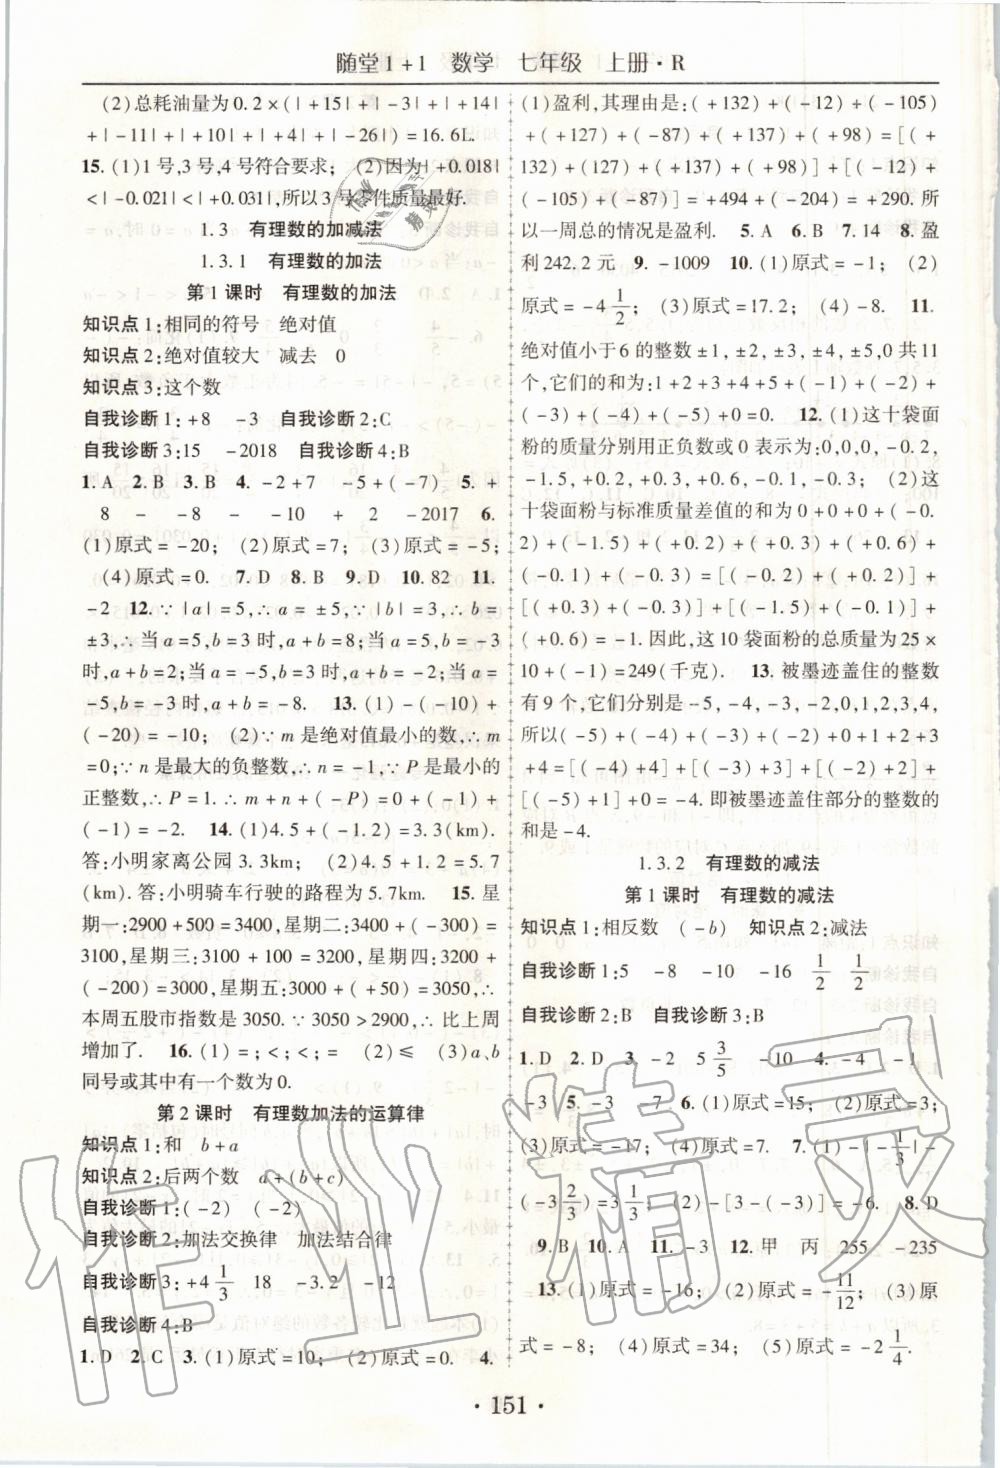 随堂1+1 数学 七年级 上册·R
(2)总耗油量为0.2×(|+15|+|-3|+|+14|
+|-11|+|+10|+|+4|+|-26|)=16.6L.
15. (1)1号,3号,4号符合要求; (2)因为|+0.018|
<|-0.021|<|+0.031|,所以3号零件质量最好.
1.3 有理数的加减法
1.3.1 有理数的加法
第1课时 有理数的加法
知识点1:相同的符号 绝对值
知识点2:绝对值较大 减去 0
知识点3:这个数
自我诊断1:+8 -3 自我诊断2:C
自我诊断3:15 -2018 自我诊断4:B
1.A 2.B 3.B 4.-2+7 -5+(-7) 5.+
8 - -8 - -10 + 2 -2017 6.
(1)原式=-20; (2)原式=7; (3)原式=-5;
(4)原式=0. 7.D 8.B 9.D 10.82 11.
-2 12.∵|a|=5,∴a=±5,∵|b|=3,∴b=
±3,∴当a=5,b=3时,a+b=8;当a=5,b=-3
时,a+b=2;当a=-5,b=3时,a+b=-2;当a=
-5,b=-3时,a+b=-8. 13.(1)(-10)+
(-20)=-10; (2)∵m是绝对值最小的数,∴m
=0;∵n是最大的负整数,∴n=-1,P是最小的
正整数,∴P=1.∴m+n+(-P)=0+(-1)+
(-1)=-2. 14.(1)4.5+(-1.2)=3.3(km).
答:小明家离公园3.3km; (2)4.5+1.2=5.7
(km).答:小明骑车行驶的路程为5.7km. 15.星
期一:2900+500=3400,星期二:3400+(-300)=
3100,星期三:3100+100=3200,星期四:3200+
(-200)=3000,星期五:3000+(+50)=3050,∴
本周五股市指数是3050.∵3050>2900,∴比上周
增加了. 16.(1)=;<;<;= (2)≤ (3)a、b
同号或其中有一个数为0.
第2课时 有理数加法的运算律
知识点1:和 b+a
知识点2:后两个数 a+(b+c)
自我诊断1:(-2) (-2)
自我诊断2:加法交换律 加法结合律
自我诊断3:+4 1/3 18 -3.2 -12
自我诊断4:B
1.D 2.C 3.(1)原式=10; (2)原式=0. 4.
(1)盈利,其理由是:(+132)+(-12)+(-105)
+(+127)+(-87)+(+137)+(+98)=[(+
132)+(127)+(+137)+(+98)]+[(-12)+
(-105)+(-87)]=+494+(-204)=+290.所
以一周总的情况是盈利. 5.A 6.B 7.14 8.盈
利242.2元 9.-1009 10.(1)原式=-1; (2)
原式=-4 1/2; (3)原式=17.2; (4)-8. 11.
绝对值小于6的整数±1,±2,±3,±4,±5,0共11
个,它们的和为:1+2+3+4+5+(-1)+(-2)+
(-3)+(-4)+(-5)+0=0. 12.(1)这十袋面
粉的质量分别用正负数或0表示为:0,0,0,-0.2,
-1.5,+0.2,+0.3,+0.6,-0.1,-0.3; (2)这
十袋面粉与标准质量差值的和为0+0+0+(-0.
2)+(-1.5)+(+0.2)+(+0.3)+(+0.6)+
(-0.1)+(-0.3)=[(-0.2)+(+0.2)]+
[(+0.3)+(-0.3)]+[(-1.5)+(-0.1)]+
(+0.6)=-1.因此,这10袋面粉的总质量为25×
10+(-1)=249(千克). 13.被墨迹盖住的整数
有9个,它们分别是-5,-4,-3,-2,0,1,2,3,4,
所以(-5)+(-4)+(-3)+(-2)+0+1+2+3
+4=[(-4)+4]+[(-3)+3]+[(-2)+2]+
[(-5)+1]+0=-4.即被墨迹盖住部分的整数的
和是-4.
1.3.2 有理数的减法
第1课时 有理数的减法
知识点1:相反数 (-b) 知识点2:减法
自我诊断1:5 -8 -10 -16 1/2 1/2
自我诊断2:B 自我诊断3:B
1.D 2.D 3.-2 5 3/5 -10 4.-4 -1
-3 5.-3 -7 6.(1)原式=15; (2)原式=3;
(3)原式=-17; (4)原式=7. 7.(1)-|-1/3|-
(-3 2/3)=3 1/3; (2)-[3-(-3)]=-6. 8.D
9.B 10.A 11.-3 12.甲 丙 255 -235
13.(1)原式=-16; (2)原式=-11/12; (3)原
式=-8; (4)原式=34; (5)原式=-2 1/4.
·151·
作业精灵